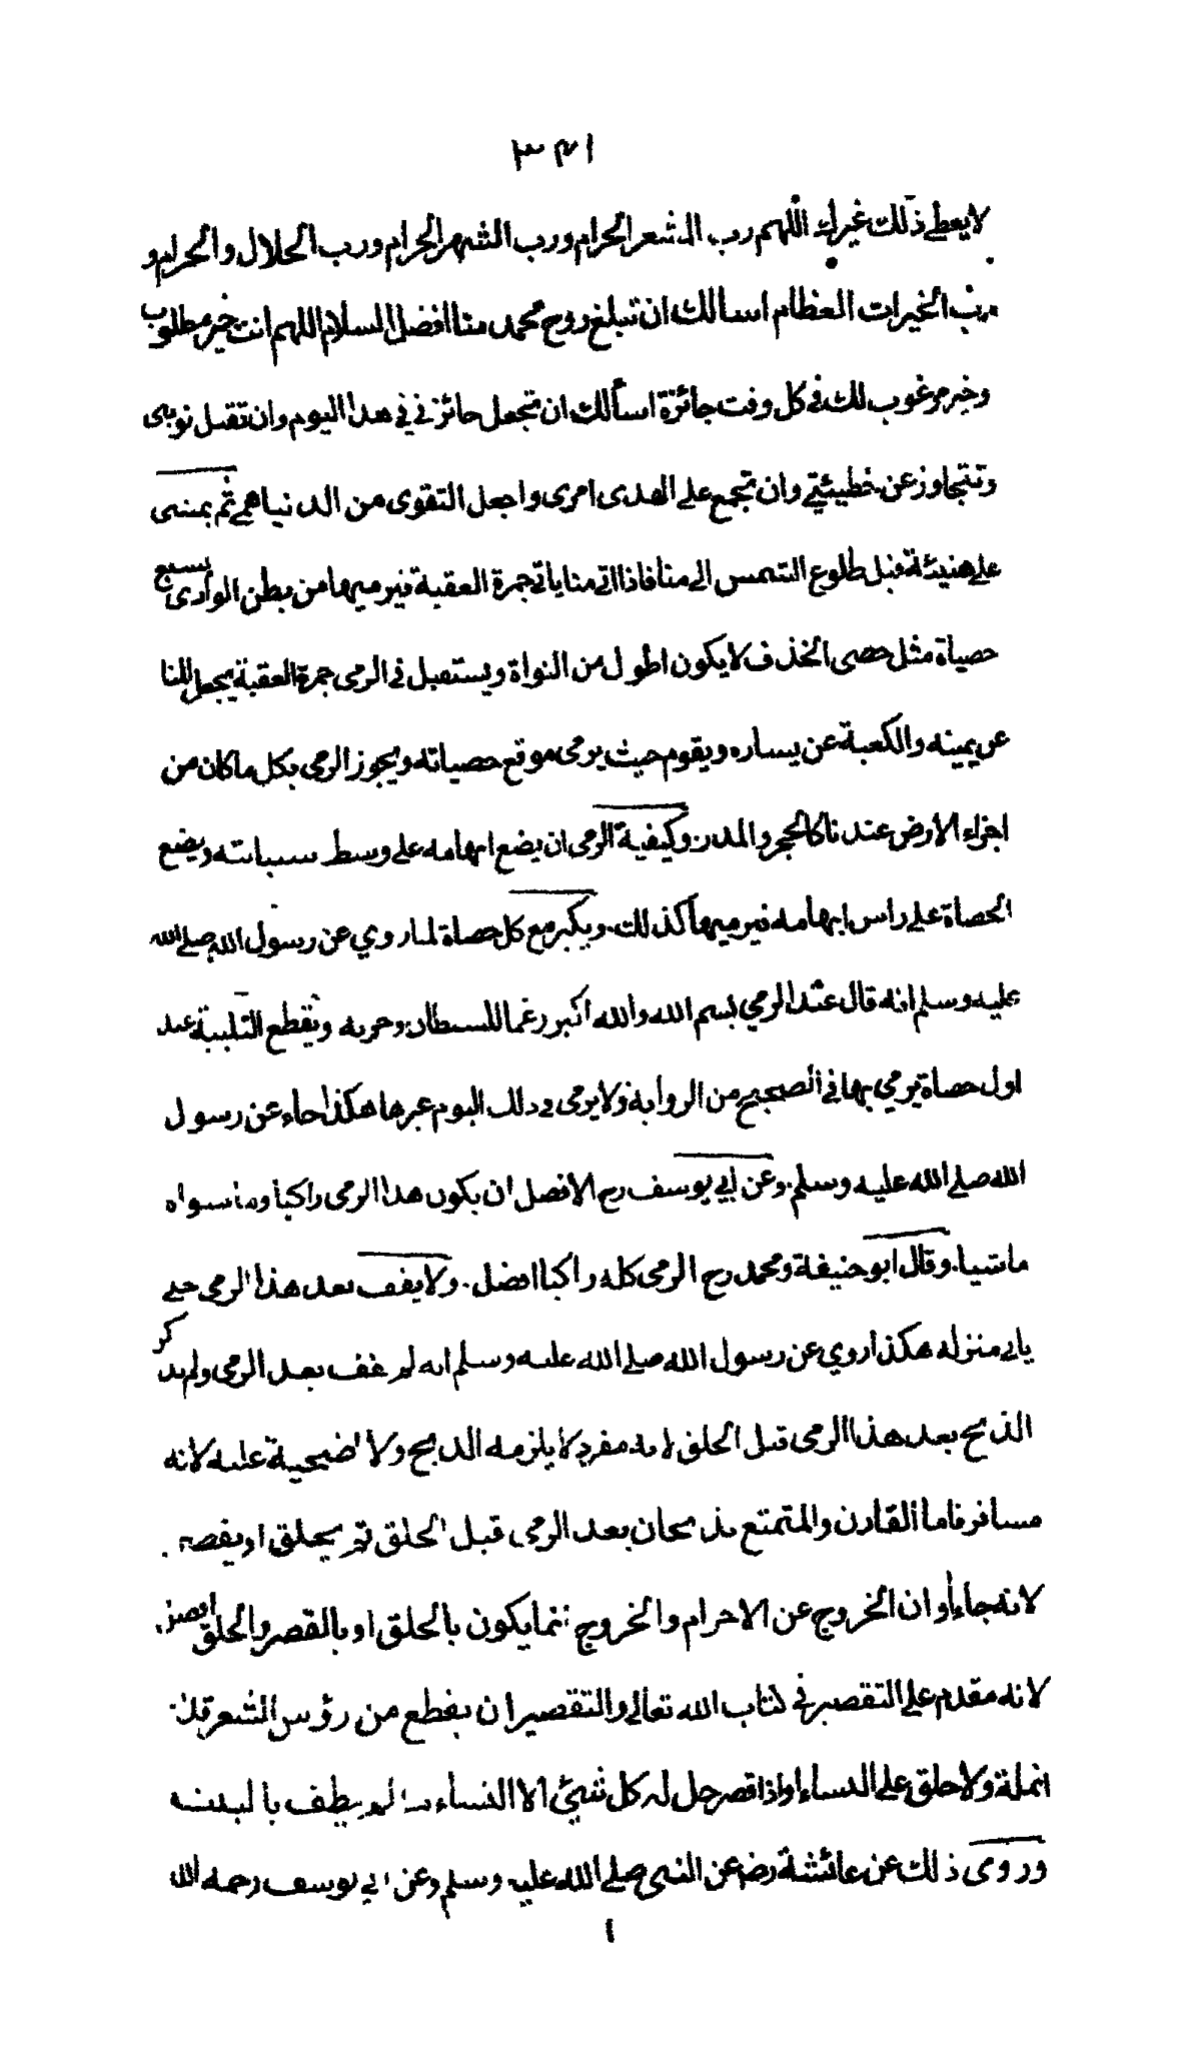 ٣٤١
لا يعطي ذلك غيرك اللهم رب المشعر الحرام ورب الشهر الحرام ورب الحلال والحرام و
رب الخيرات العظام اسالك ان تبلغ روح محمد منا افضل السلام اللهم انت خير مطلوب
وخير مرغوب لك في كل وقت جائزة اسألك ان تجعل جائزتي في هذا اليوم وان تقبل توبتي
وتتجاوز عن خطيئتي وان تجمع على الهدى امرى واجعل التقوى من الدنيا همي ثم يمشى
على هنيئة قبل طلوع الشمس الى منا فاذا اتى منا ياتي جمرة العقبة فيرميها من بطن الوادى بسبع
حصياة مثل حصى الخذف لا يكون اطول من النواة ويستقبل في الرمى جمرة العقبة يجعل المنا
عن يمينه والكعبة عن يساره ويقوم حيث يرمى موقع حصياته ويجوز الرمى بكل ما كان من
اجزاء الارض عندنا كالحجر والمدر وكيفية الرمى ان يضع ابهامه على وسط سبابته ويضع
الحصاة على راس ابهامه فيرميها كذلك. ويكبر مع كل حصاة لما روي عن رسول الله صلى الله
عليه وسلم انه قال عند الرمي بسم الله والله اكبر رغما للشيطان وحزبه ويقطع التلبية عند
اول حصاة يرمي بها في الصحيح من الرواية ولا يرمى في ذلك اليوم غيرها هكذا جاء عن رسول
الله صلى الله عليه وسلم. وعن ابي يوسف رح الافضل ان يكون هذا الرمى راكبا وما سواه
ماشيا. وقال ابو حنيفة ومحمد رح الرمى كله راكبا افضل. ولا يقف بعد هذا الرمى حتى
ياتي منزله هكذا روي عن رسول الله صلى الله عليه وسلم انه لم يقف بعد الرمى ولم يذكر
الذبح بعد هذا الرمى قبل الحلق لانه مفرد لا يلزمه الذبح ولا اضحية عليه لانه
مسافر فاما القارن والمتمتع يذبحان بعد الرمى قبل الحلق ثم يحلق او يقصر
لانه جاء اوان الخروج عن الاحرام والخروج انما يكون بالحلق او بالقصر والحلق افضل
لانه مقدم على التقصير في كتاب الله تعالى والتقصير ان يقطع من رؤس الشعر قدر
انملة ولا حلق على النساء واذا قصر حل له كل شيئ الا النساء ما لم يطف بالبيت
وروى ذلك عن عائشة رض عن النبى صلى الله عليه وسلم وعن ابي يوسف رحمه الله